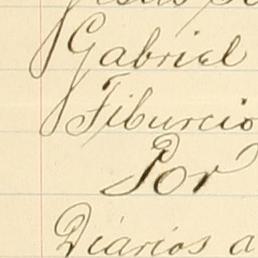 Gabriel
Tiburcio
Por
Diarios a